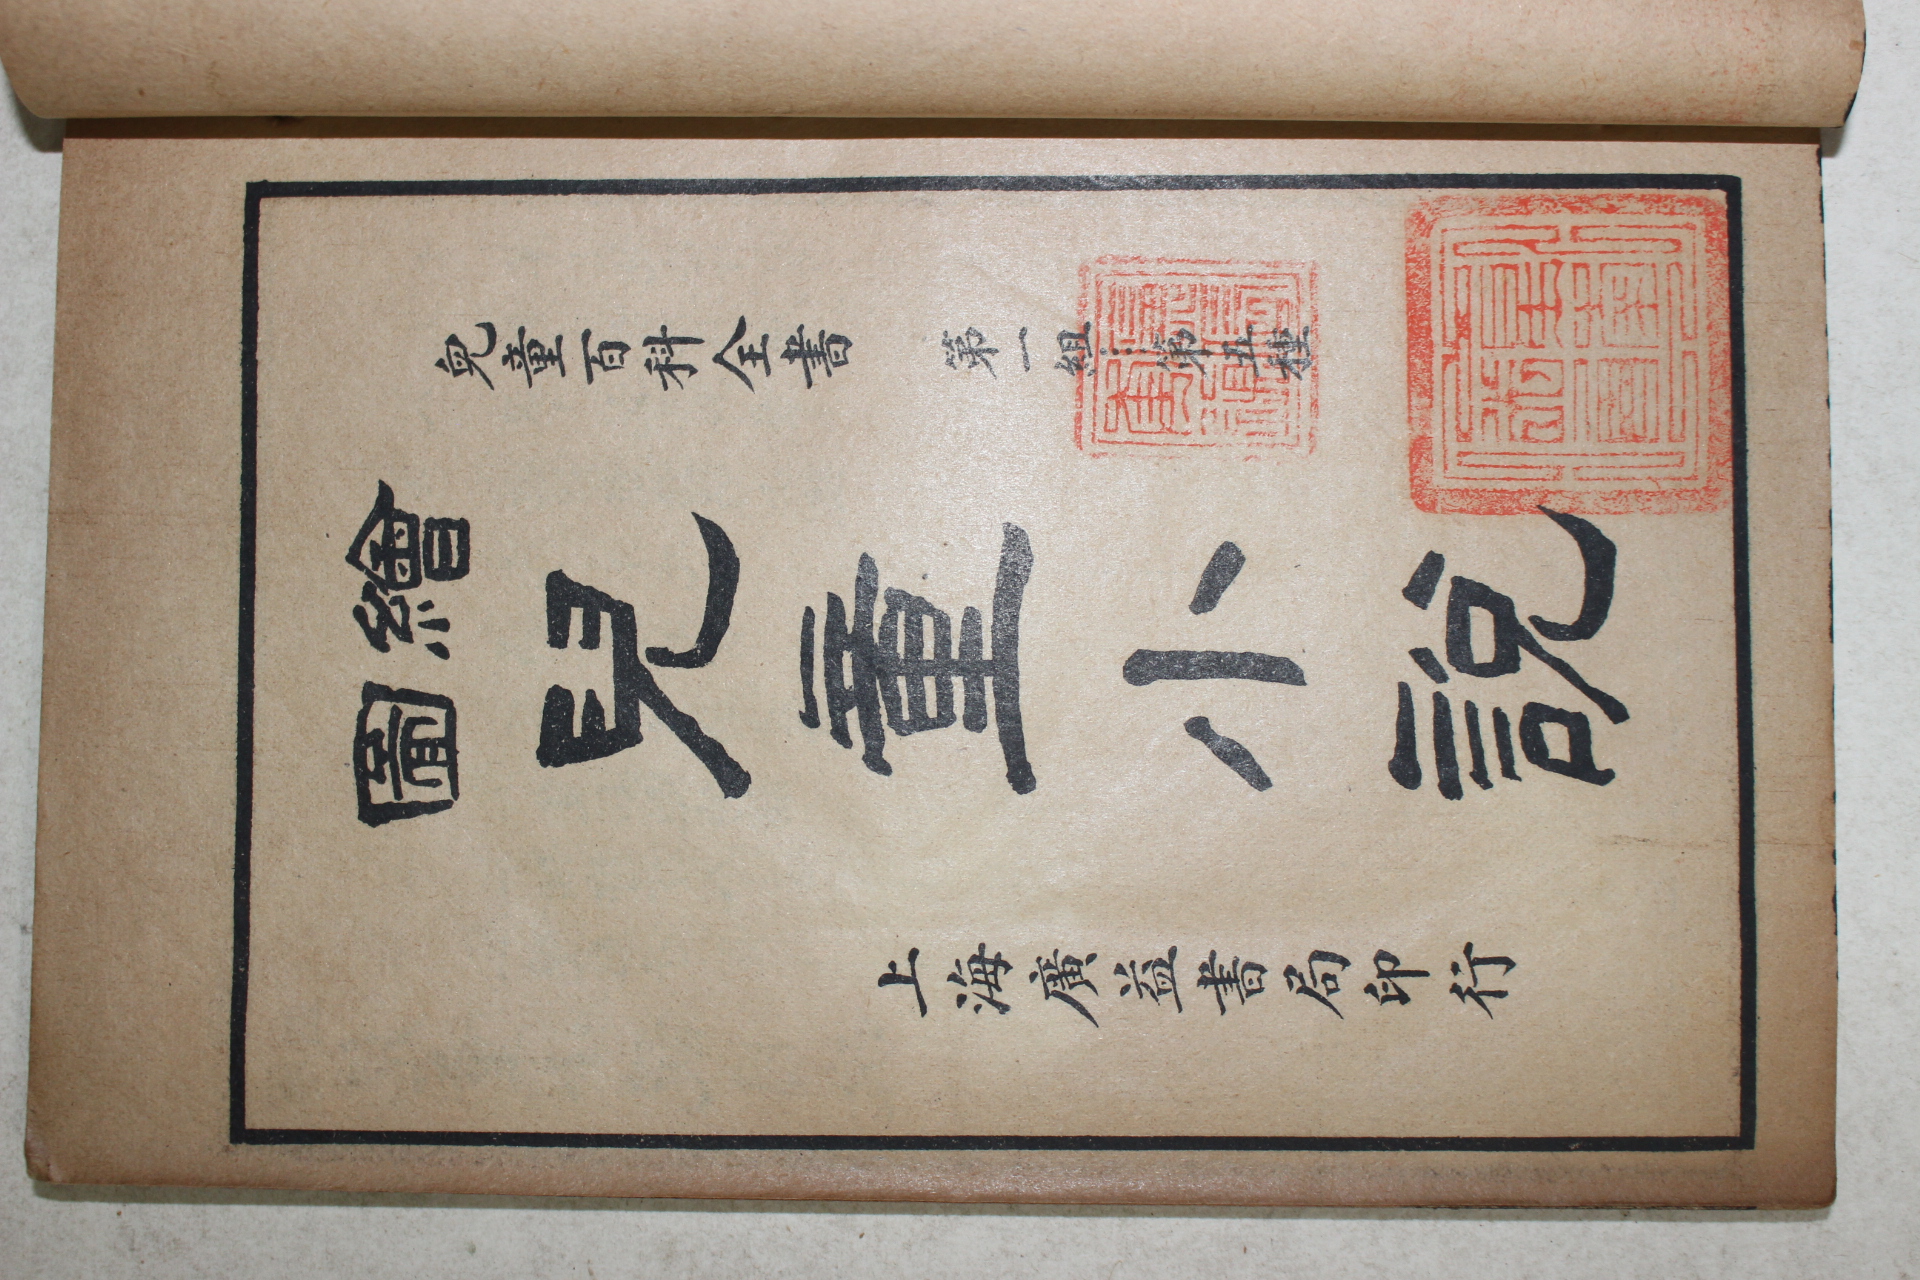 兒童百科全書　第一組…第五種
繪圖
兒童小說
上海廣益書局印行